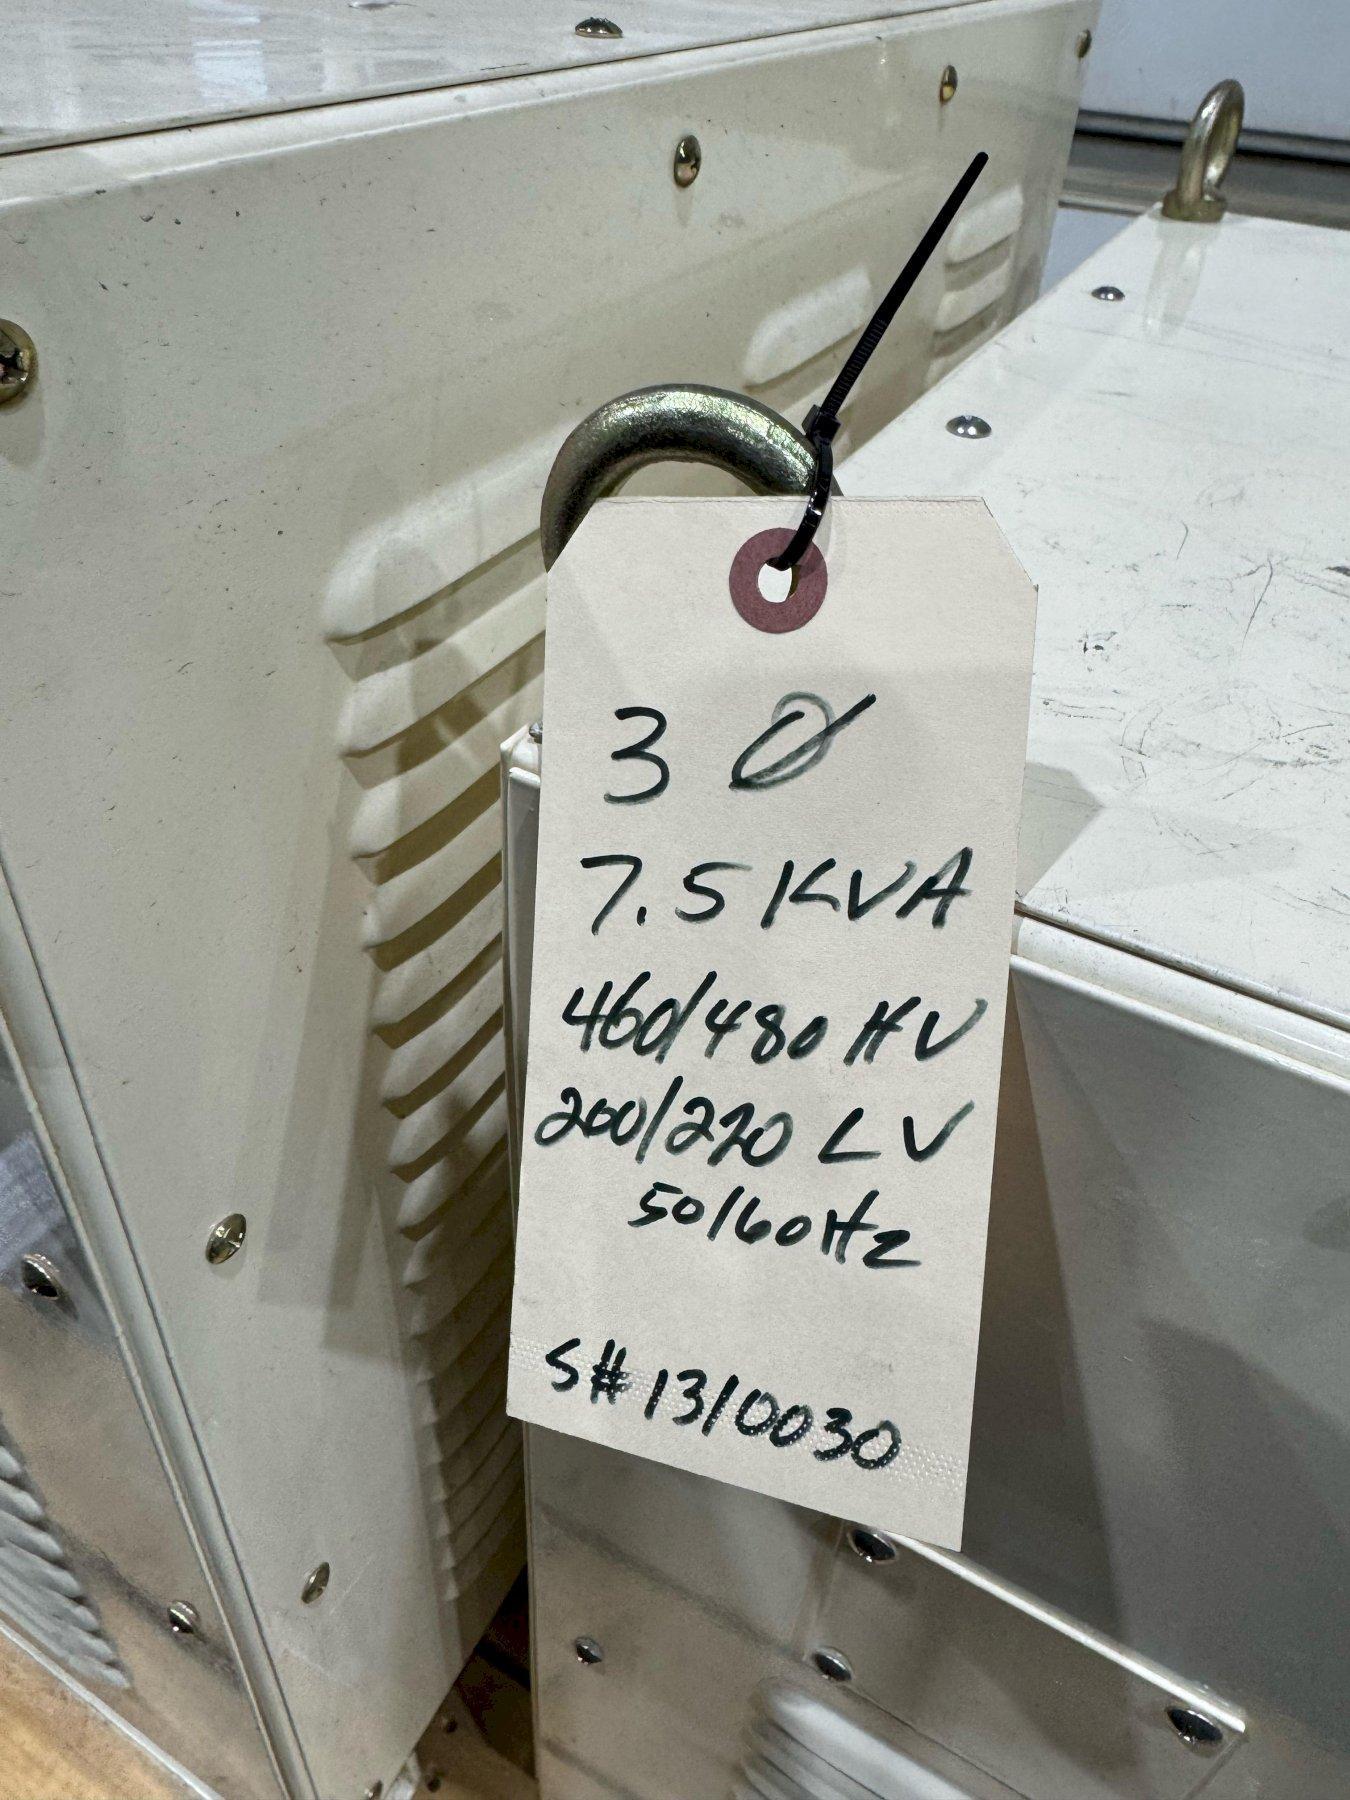 3 Ø
7.5 KVA
460/480 HV
200/220 LV
50/60Hz
S# 1310030